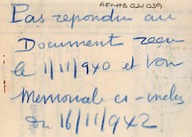 AFMTB 021 039
Pas repondu au
Document recu
le 1/11/940 et Von
Memoriale ci-inclus
du 16/11/942